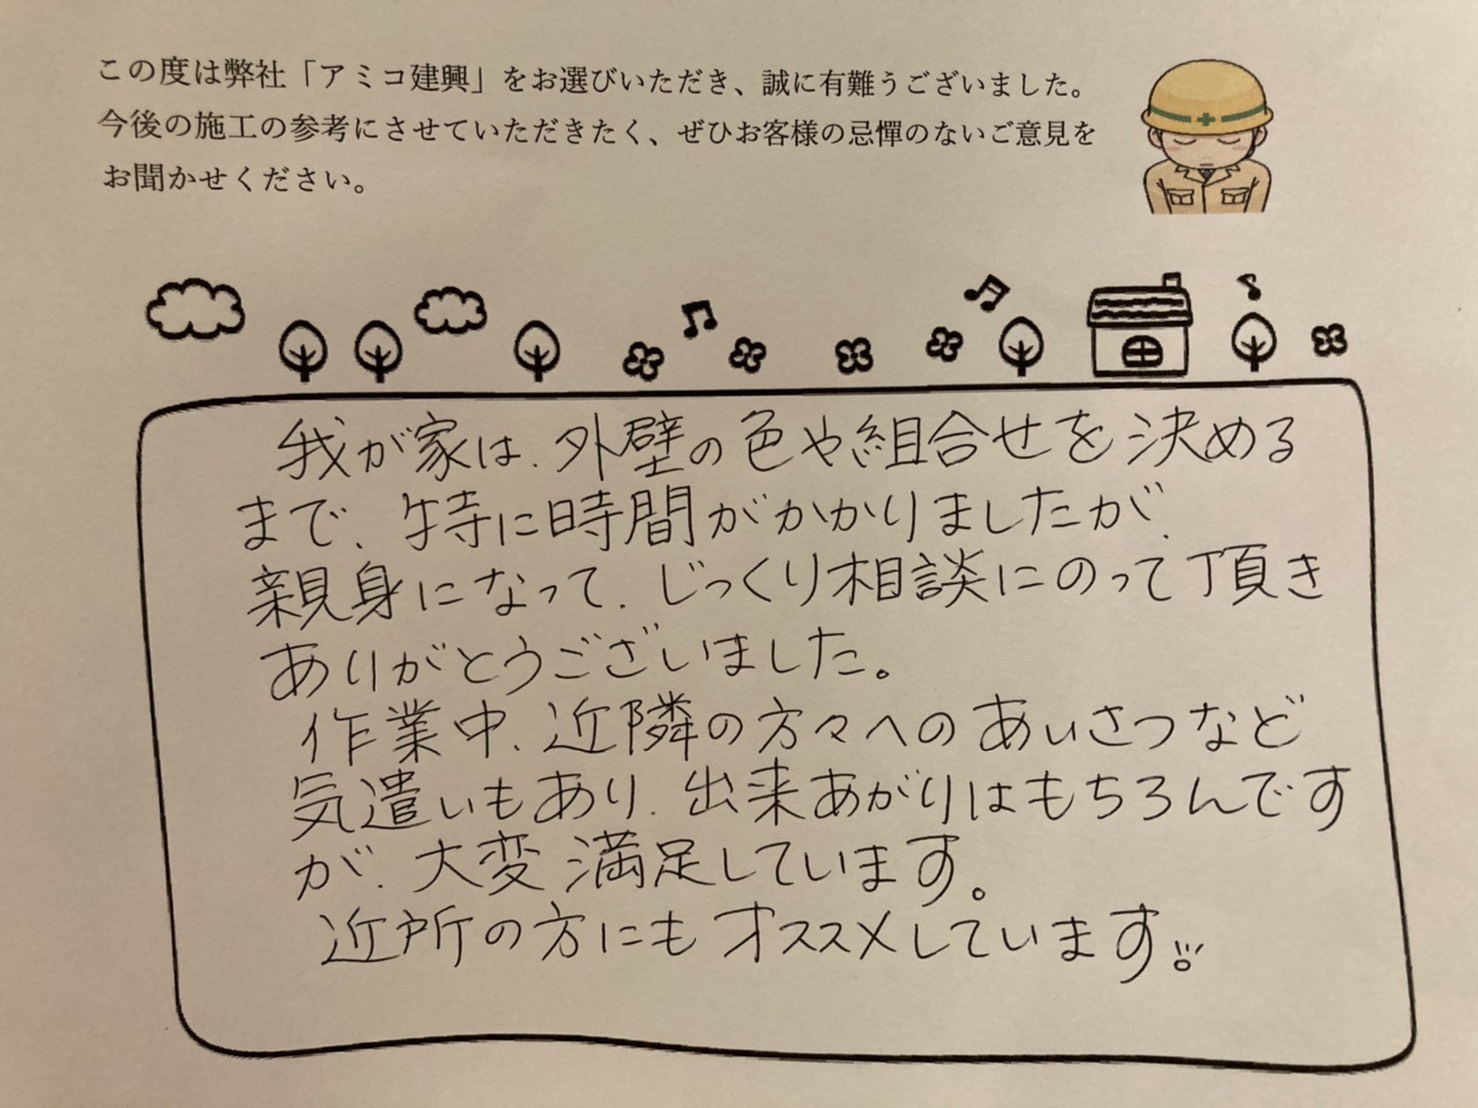 この度は弊社「アミコ建興」をお選びいただき、誠に有難うございました。
今後の施工の参考にさせていただきたく、ぜひお客様の忌憚のないご意見を
お聞かせください。
我が家は、外壁の色や組合せを決める
まで、特に時間がかかりましたが、
親身になって、じっくり相談にのって頂き
ありがとうございました。
作業中、近隣の方々へのあいさつなど
気遣いもあり、出来あがりはもちろんです
が、大変満足しています。
近所の方にもオススメしています。